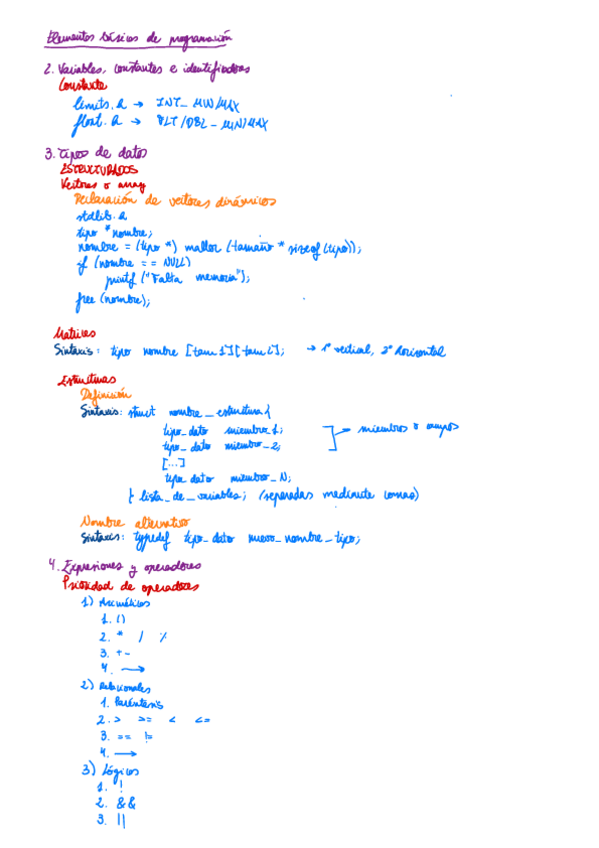 Elementos básicos de programación
2. Variables, constantes e identificadores
Constante
limits.h → INT_MIN/MAX
float.h → FLT/DBL_MIN/MAX
3. Tipos de datos
ESTRUCTURADOS
Vectores o array
Declaración de vectores dinámicos
stdlib.h
tipo *nombre;
nombre = (tipo *) malloc (tamaño * sizeof (tipo));
if (nombre == NULL)
printf ("Falta memoria");
free (nombre);
Matrices
Sintaxis: tipo nombre [tam 1][tam 2]; → 1º vertical, 2º horizontal
Estructuras
Definición
Sintaxis: struct nombre_estructura {
tipo_dato miembro_1;
tipo_dato miembro_2; → miembros o campos
[...]
tipo_dato miembro_N;
} lista_de_variables; (separadas mediante comas)
Nombre alternativo
Sintaxis: typedef tipo_dato nuevo_nombre_tipo;
4. Expresiones y operadores
Prioridad de operadores
1) Aritméticos
1. ()
2. * / %
3. + -
4. →
2) Relacionales
1. Paréntesis
2. > >= < <=
3. == !=
4. →
3) Lógicos
1. !
2. &&
3. ||